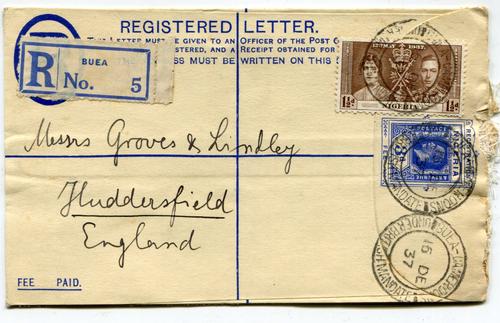 REGISTERED LETTER.
THIS LETTER MUST BE GIVEN TO AN OFFICER OF THE POST
REGISTERED, AND A RECEIPT OBTAINED FOR
ADDRESS MUST BE WRITTEN ON THIS
R
BUEA
No. 5
12TH MAY 1937.
1½d
NIGERIA
1½d
POSTAGE
NIGERIA
REVENUE
Messrs Groves & Lindley
Huddersfield
England
BUEA-CAMEROONS
UNDER BRITISH MANDATE
16 DE
37
FEE PAID.